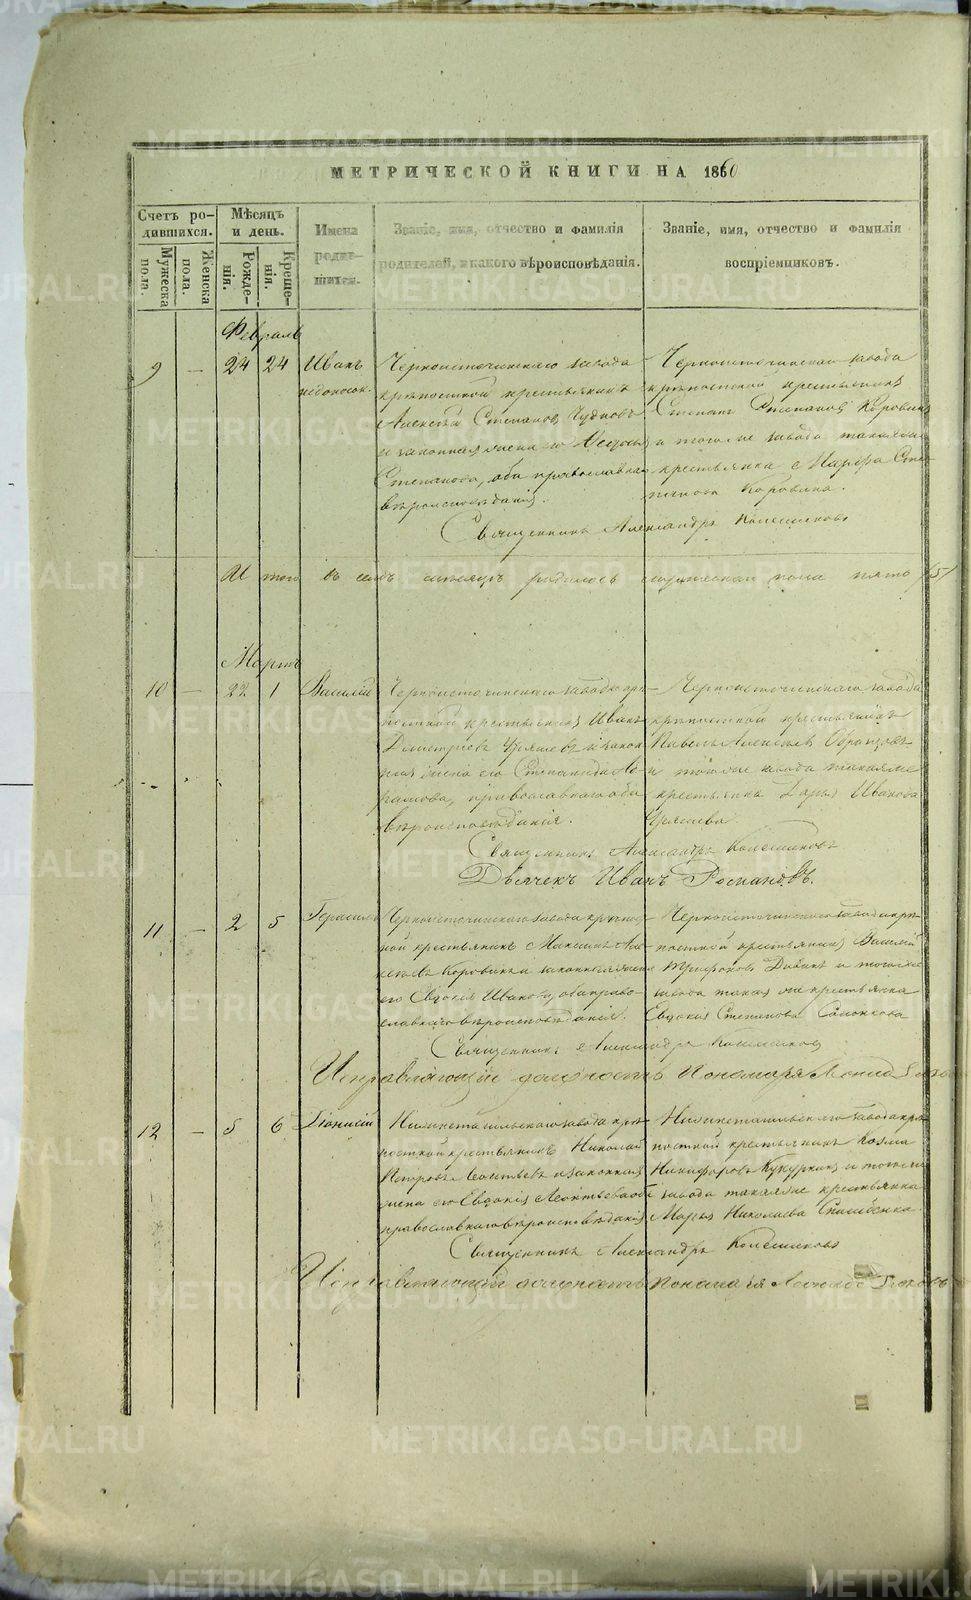 МЕТРИЧЕСКОЙ КНИГИ НА 1860
Счетъ ро-
дившихся.
Мужеска
пола.
Женска
пола.
Мѣсяцъ
и день.
Рожде-
нія.
Креще-
нія.
Имена
родив-
шихся.
Званіе, имя, отчество и фамилія
родителей, и какого вѣроисповѣданія.
Званіе, имя, отчество и фамилія
воспріемниковъ.
Февраль
9 — 24 24 Иванъ
недоносок.
Черноисточинскаго завода
крѣпостной крестьянинъ
Алексѣй Степановъ
законная жена его
Степанова, оба православнаго
вѣроисповѣданія.
Черноисточинскаго завода
крѣпостной крестьянинъ
Степанъ Степановъ Коровинъ
и тогоже завода такаяже
крестьянка Марфа Сте-
панова Коровина.
Священникъ Александръ Колесниковъ
И того въ семъ мѣсяцѣ родилось мужеска пола пять /5/
Мартъ
10 — 22 1 Василій
Черноисточинскаго завода крѣ-
постной крестьянинъ Иванъ
Дмитріевъ и закон-
ная жена его Степанида Аб-
рамова, православнаго оба
вѣроисповѣданія.
Черноисточинскаго завода
крѣпостной крестьянинъ
Павелъ Алексѣевъ Образцовъ
и тогоже завода такаяже
крестьянка Дарья Иванова
Священникъ Александръ Колесниковъ
Дьячекъ Иванъ Романовъ.
11 — 2 5 Герасимъ
Черноисточинскаго завода крѣпост-
ной крестьянинъ Максимъ Але-
ксѣевъ Коровинъ и законная жена
его Евдокія Иванова, оба право-
славнаго вѣроисповѣданія.
Черноисточинскаго завода крѣ-
постной крестьянинъ Василій
Трифоновъ и тогоже
завода такая же крестьянка
Евдокія Степанова
Священникъ Александръ Колесниковъ
Исправляющій должность Пономаря
12 — 5 6 Діонисій
Нижнетагильскаго завода крѣ-
постной крестьянинъ Николай
Петровъ Леонтьевъ и законная
жена его Евдокія Леонтьева оба
православнаго вѣроисповѣданія
Нижнетагильскаго завода крѣ-
постной крестьянинъ Козма
Никифоровъ Кукуркинъ и тогоже
завода такаяже крестьянка
Марья Николаева
Священникъ Александръ Колесниковъ
Исправляющій должность Пономаря
METRIKI.GASO-URAL.RU